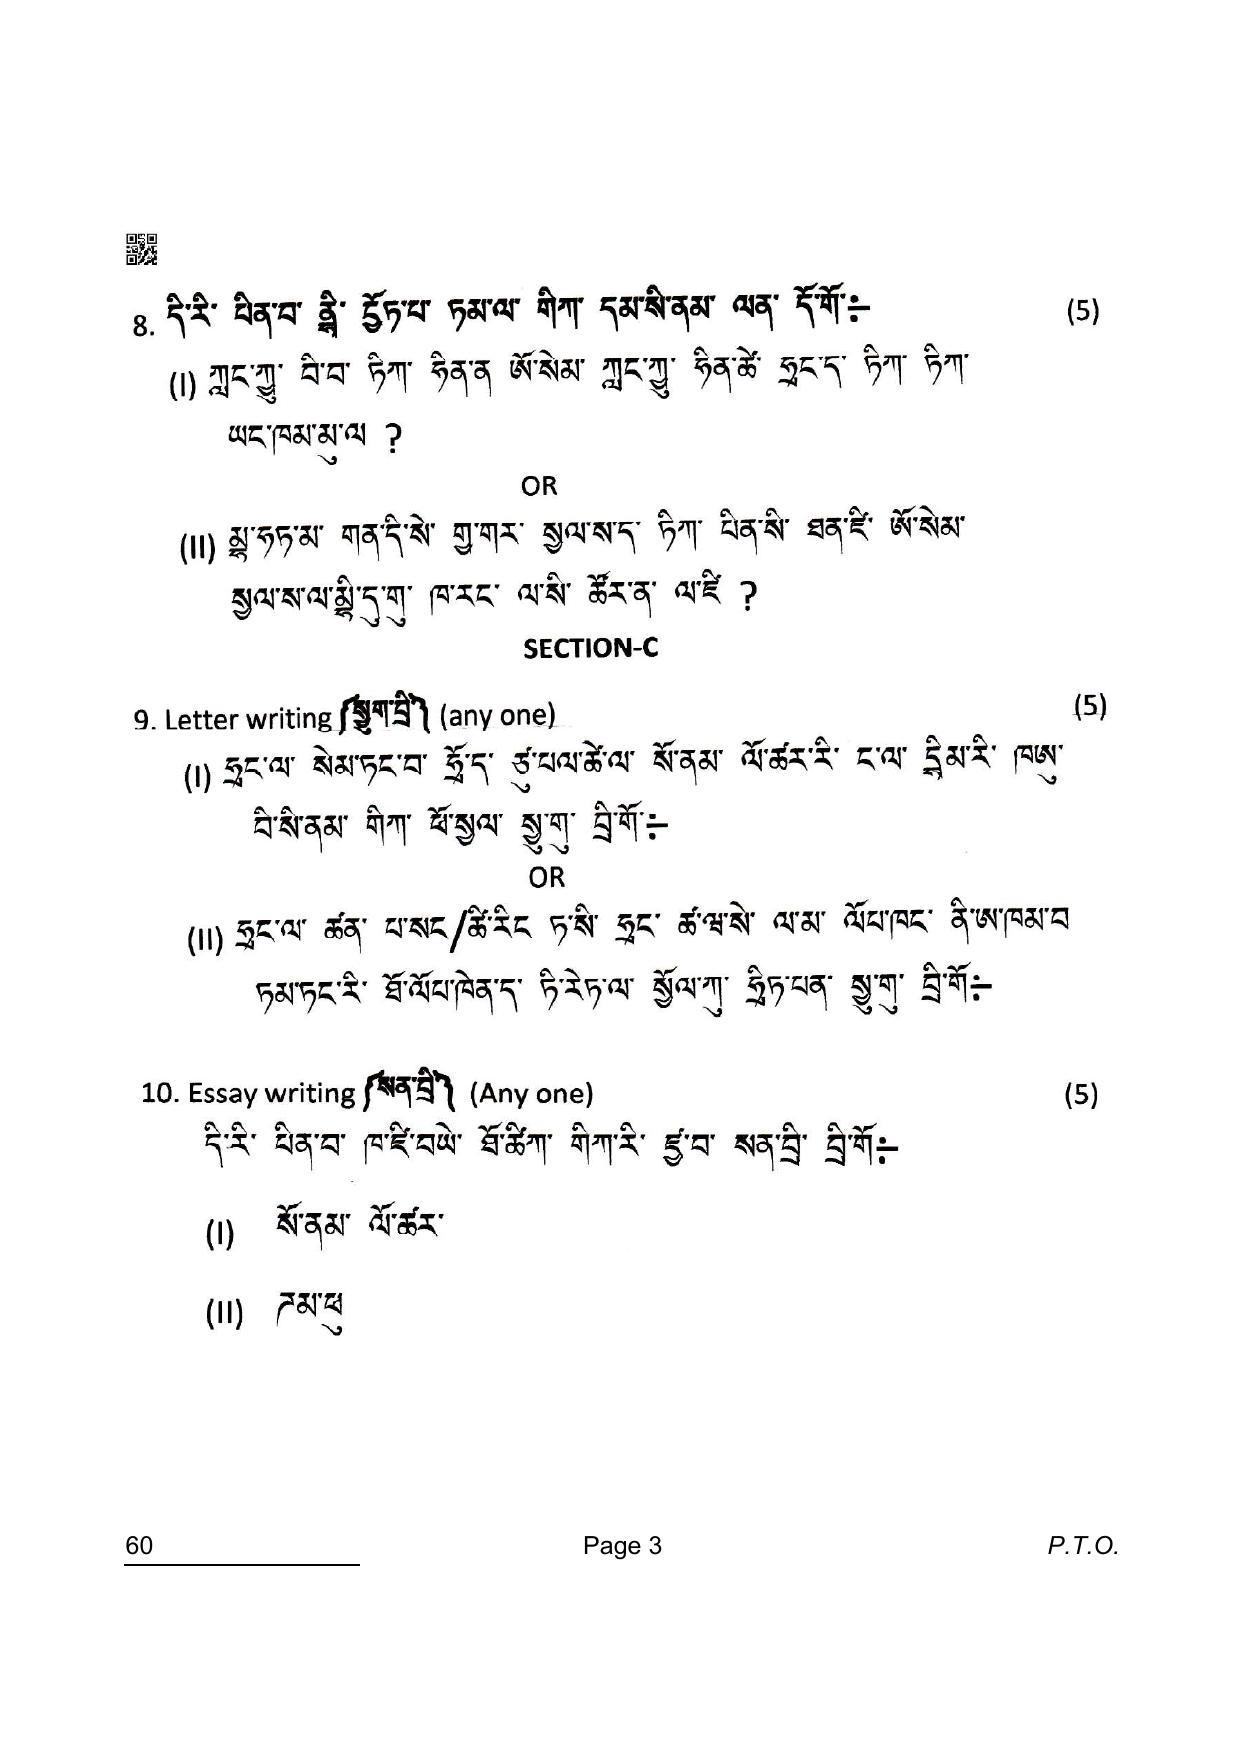 8. དི་རི་ པིན་བ་ ནྡྷི་ དྱོཏ་པ་ ཏམ་ལ་ གིཀ་ དམ་སི་ནམ་ ལན་ དོ་གོ་÷ (5)
(I) ཀླང་ཀྱུ་ བི་བ་ ཏིཀ་ ཧིན་ན ཨོ་སེམ་ ཀླང་ཀྱུ་ ཧིན་ཚེ་ ཧྲང་ད་ ཏིཀ་ ཏིཀ་
ཡང་ཁམ་མུ་ལ ?
OR
(II) མྷ་ཧཏ་མ་ གན་དི་སེ་ གྱ་གར་ སྱལ་ས་ད་ ཏིཀ་ པིན་སི་ ཐན་ཛི་ ཨོ་སེམ་
སྱལ་ས་ལ་མྷི་དུ་གུ་ ཁ་རང་ ལ་སི་ ཚོར་ན་ ལ་ཛི ?
SECTION-C
9. Letter writing (སྱུག་བྲི) (any one) (5)
(I) ཧྲང་ལ་ སེམ་ཏང་བ་ ཧྲོ་ད་ ཙུ་པལ་ཚེ་ལ་ སོ་ནམ་ ལོ་ཚར་རི་ ང་ལ་ དྷིམ་རི་ ཁཨུ་
བི་སི་ནམ་ གིཀ་ ཕོ་སྱལ་ སྱུ་གུ་ བྲི་གོ་÷
OR
(II) ཧྲང་ལ་ ཚན་ པ་སང/ཚི་རིང ཏ་སི་ ཧྲང་ ཚ་ཝ་སེ་ ལ་མ་ ལོཔ་ཁང་ ནི་ཨ་ཁམ་བ
ཏམ་ཏང་རི་ ཐོ་ལོཔ་ཁེན་ད་ ཏི་རེཏ་ལ་ སྱོལ་ཀུ་ ཧྲིཏ་པན་ སྱུ་གུ་ བྲི་གོ་÷
10. Essay writing (སན་བྲི) (Any one) (5)
དི་རི་ པིན་བ་ ཁ་ཛི་བཡེ་ ཐོ་ཚིཀ་ གིཀ་རི་ ཛྱ་བ་ སན་བྲི་ བྲི་གོ་÷
(I) སོ་ནམ་ ལོ་ཚར་
(II) ཌམ་ཕུ
60 Page 3 P.T.O.